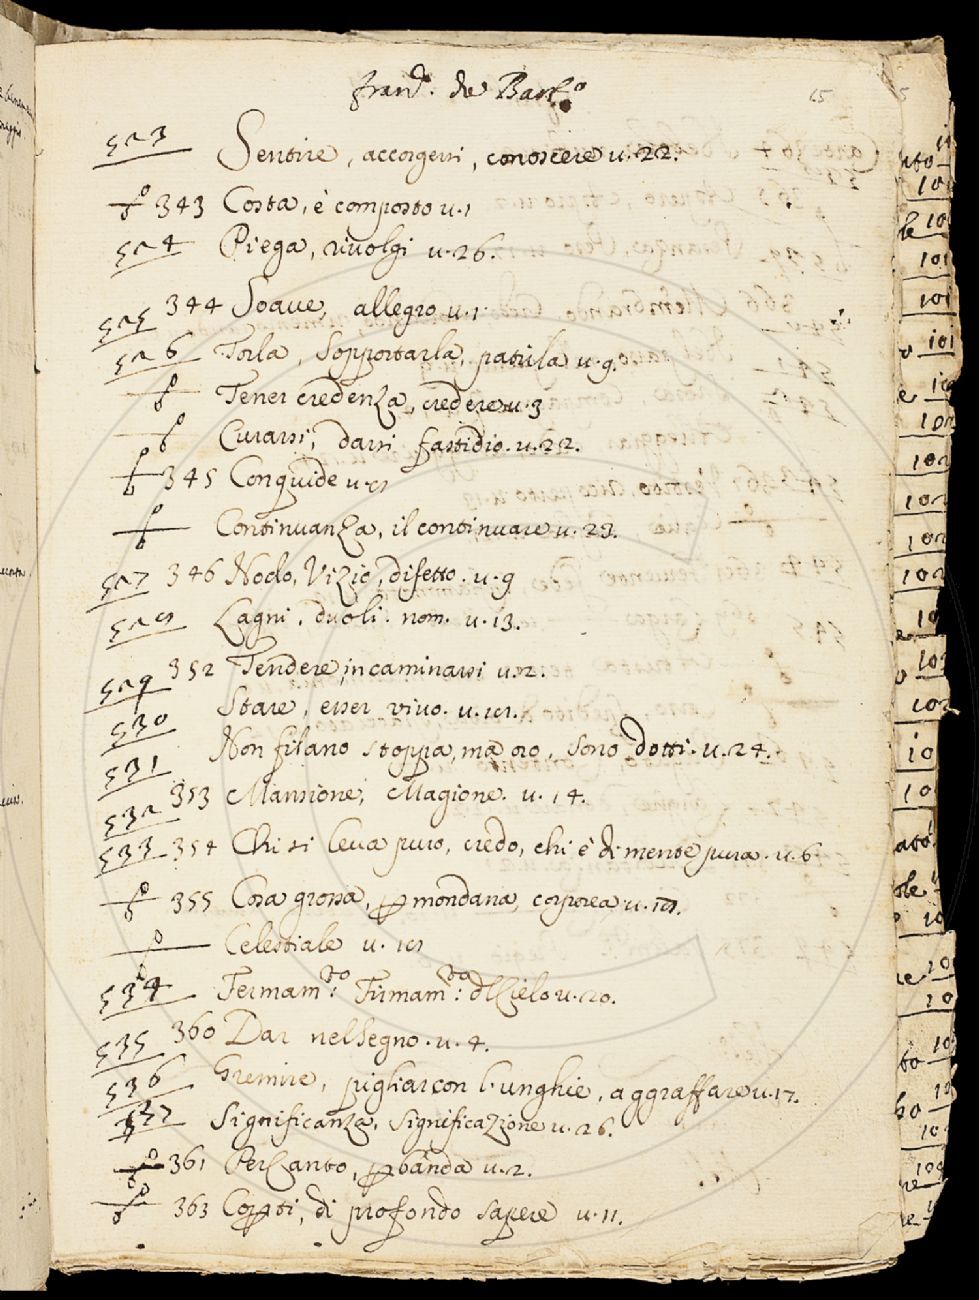 fran.º de Barb.º 15
523 Sentire, accorgersi, conoscere u. 22.
343 Costa, è composto u. 1
524 Piega, rivolgi u. 26.
525 344 Soave, allegro u. 1
526 Torla, Sopportarla, patirla u. 9.
Tener credenza, credere u. 3
Curarsi, darsi fastidio. u. 22.
345 Conquide u. 8
Continuanza, il continuare u. 23.
527 346 Nodo, Vizio, difetto. u. 9
528 Lagni, duoli. nom. u. 13.
529 352 Tendere, incaminarsi u. 2.
530 Stare, esser vivo. u. 18.
531 Non filano stoppa, ma oro, sono dotti. u. 24.
532 353 Mansione, Magione. u. 14.
533 354 Chi si leva puro, credo, chi è di mente pura. u. 6
355 Cosa grossa, p mondana, corporea u. 18.
Celestiale u. 18
534 Fermam.to: Firmam.to: del Cielo u. 20.
535 360 Dar nel segno. u. 4.
536 Gremire, pigliar con l'unghie, aggraffare u. 17.
537 Significanza, significazione u. 26.
361 Per canto, p banda u. 2.
363 Coperti, di profondo sapere u. 11.